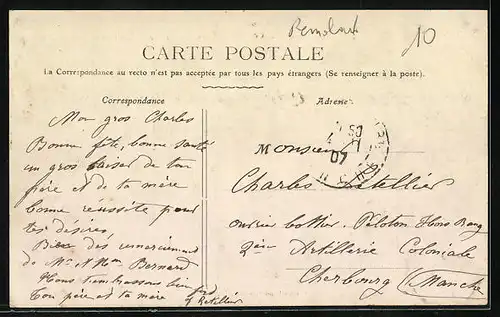 10
CARTE POSTALE
La Correspondance au recto n'est pas acceptée par tous les pays étrangers (Se renseigner à la poste).
Correspondance
Mon gros Charles
Bonne fête, bonne santé
un gros baiser de ton
père et de ta mère
bonne réussite pour
tes désires.
Bien des remerciment
de Mr et Mme Bernard
Nous t'embrassons bien fort
Ton père et ta mère
Retellier
Adresse
Monsieur
Charles Retellier
ouvrier bottier. Peloton Hors Rang
2ème Artillerie Coloniale
Cherbourg (Manche)
07